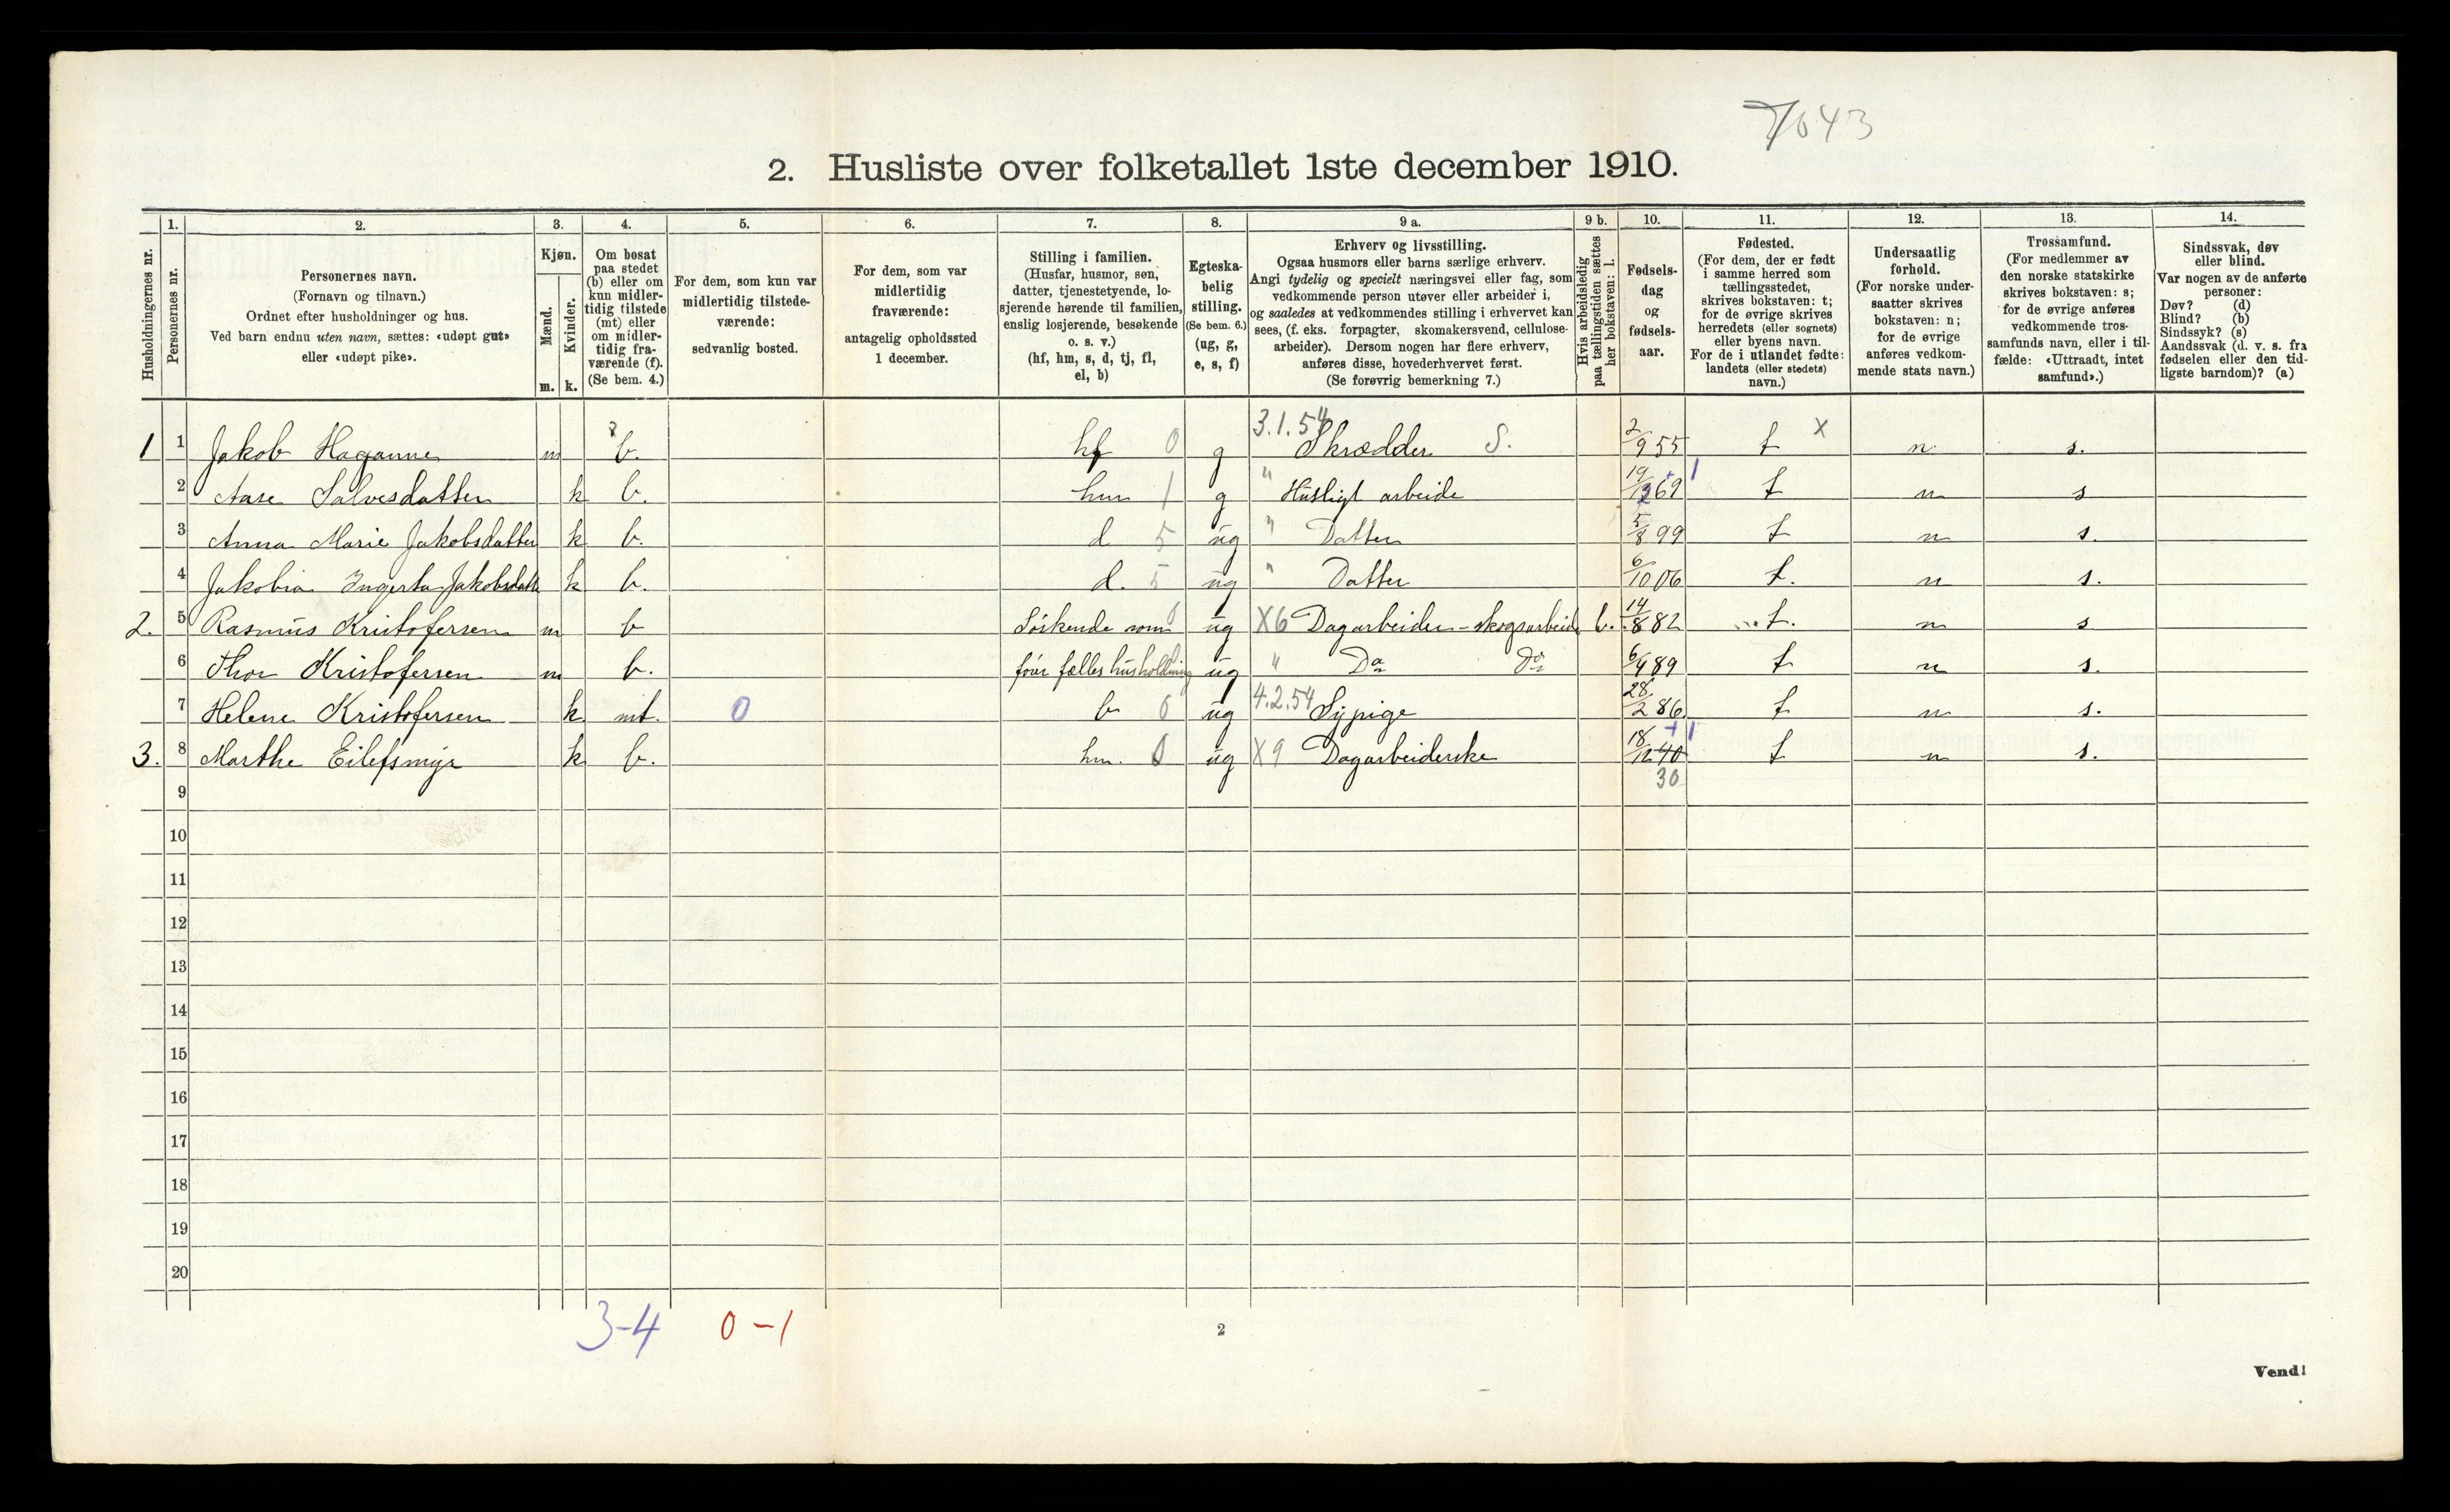 7043
2. Husliste over folketallet 1ste december 1910.
1. 2. 3. 4. 5. 6. 7. 8. 9 a. 9 b. 10. 11. 12. 13. 14.
Husholdningernes nr.
Personernes nr.
Personernes navn.
(Fornavn og tilnavn.)
Ordnet efter husholdninger og hus.
Ved barn endnu uten navn, sættes: «udøpt gut»
eller «udøpt pike».
Kjøn.
Mænd.
Kvinder.
m. k.
Om bosat
paa stedet
(b) eller om
kun midler-
tidig tilstede
(mt) eller
om midler-
tidig fra-
værende (f).
(Se bem. 4.)
For dem, som kun var
midlertidig tilstede-
værende:
sedvanlig bosted.
For dem, som var
midlertidig
fraværende:
antagelig opholdssted
1 december.
Stilling i familien.
(Husfar, husmor, søn,
datter, tjenestetyende, lo-
sjerende hørende til familien,
enslig losjerende, besøkende
o. s. v.)
(hf, hm, s, d, tj, fl,
el, b)
Egteska-
belig
stilling.
(Se bem. 6.)
(ug, g,
e, s, f)
Erhverv og livsstilling.
Ogsaa husmors eller barns særlige erhverv.
Angi tydelig og specielt næringsvei eller fag, som
vedkommende person utøver eller arbeider i,
og saaledes at vedkommendes stilling i erhvervet kan
sees, (f. eks. forpagter, skomakersvend, cellulose-
arbeider). Dersom nogen har flere erhverv,
anføres disse, hovederhvervet først.
(Se forøvrig bemerkning 7.)
Hvis arbeidsledig
paa tællingstiden sættes
her bokstaven: l.
Fødsels-
dag
og
fødsels-
aar.
Fødested.
(For dem, der er født
i samme herred som
tællingsstedet,
skrives bokstaven: t;
for de øvrige skrives
herredets (eller sognets)
eller byens navn.
For de i utlandet fødte:
landets (eller stedets)
navn.)
Undersaatlig
forhold.
(For norske under-
saatter skrives
bokstaven: n;
for de øvrige
anføres vedkom-
mende stats navn.)
Trossamfund.
(For medlemmer av
den norske statskirke
skrives bokstaven: s;
for de øvrige anføres
vedkommende tros-
samfunds navn, eller i til-
fælde: «Uttraadt, intet
samfund».)
Sindssvak, døv
eller blind.
Var nogen av de anførte
personer:
Døv? (d)
Blind? (b)
Sindssyk? (s)
Aandssvak (d. v. s. fra
fødselen eller den tid-
ligste barndom)? (a)
1 1 Jakob m b. hf 0 g 3.1.54 Skrædder S. 2/9 55 t x n s.
2 Aase Salvesdatter k b. hm 1 g " Husligt arbeide 19/12 69 +1 t n s
3 Anna Marie Jakobsdatter k b. d 5 ug " Datter 5/8 99 t n s.
4 Jakobia k b. d. 5 ug " Datter 6/10 06 t. n s.
2. 5 Rasmus Kristofersen m b Söskende som 0 ug X6 Dagarbeider - skogsarbeid l. 14/8 82 t. n s
6 Thor Kristofersen m b. före fælles husholdning ug " Do Do 6/4 89 t n s.
7 Helene Kristofersen k mt. 0 b 0 ug 4.2.54 Sypige 28/2 86 t n s.
3. 8 Marthe Eilefsmyr k b. hm. 0 ug X9 Dagarbeiderske 18/12 40 +1 t n s.
9 30
10
11
12
13
14
15
16
17
18
19
20
3-4 0-1
2
Vend!